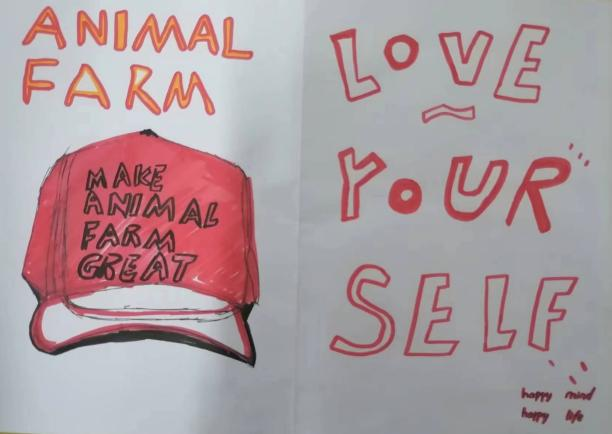 ANIMAL
FARM
MAKE
ANIMAL
FARM
GREAT
LOVE
YOUR
SELF
happy mind
happy life